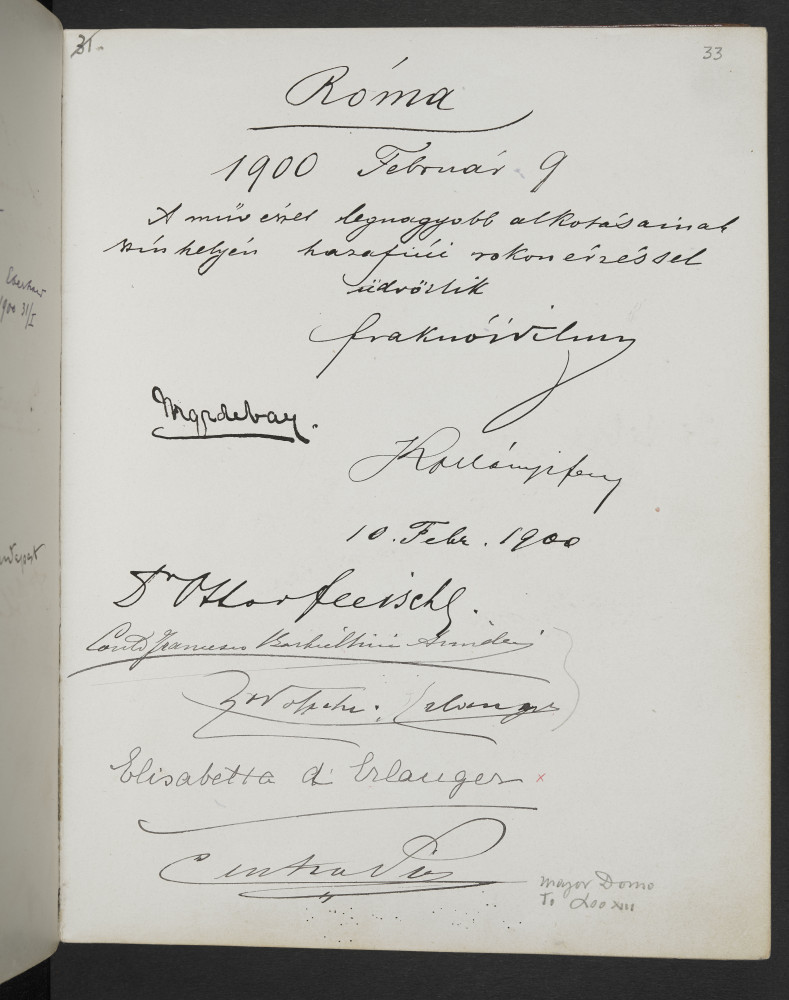 31.
33
Róma
1900 Február 9
A művészet legnagyobb alkotásainak
színhelyén hazafiúi rokonérzéssel
üdvözlik
Fraknói Vilmos
Kollányi Ferencz
10. Febr. 1900
Dr Ottor Fleischl.
Conte Francesco Barbiellini Amidei
Erlanger
Elisabetta d' Erlanger x
Major Domo
To Leo XIII
Budapest
1900 31/I